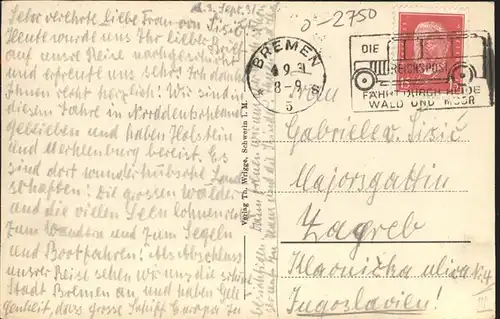 d. 3. Sept. 31.
Sehr verehrte Liebe Frau von Sisić!
Heute wurde uns Ihr lieber Brief
auf unsre Reise nachgeschickt
und erfreute uns sehr. Ich danke
Ihnen recht herzlich! Wir sind in
diesem Jahre in Norddeutschland
geblieben und haben Holstein
und Mecklenburg bereist. Es
sind dort wunderhübsche Land-
schaften! Die grossen Wälder
und die vielen Seen lohnen
zum Wandern und zum Segeln
und Bootfahren! Als Abschluss
unsrer Reise sehen wir uns die schöne
Stadt Bremen an und haben Gele-
genheit, das grosse Schiff Europa zu
besichtigen.
Verlag Th. Wrigge, Schwerin i. M.
0-2750
BREMEN
9.31
8-9
5
DIE
REICHSPOST
FÄHRT DURCH HEIDE
WALD UND MOOR
Frau
Gabriele v. Sisić
Majorsgattin
Zagreb
Klaonička ulica
III
Jugoslavien!